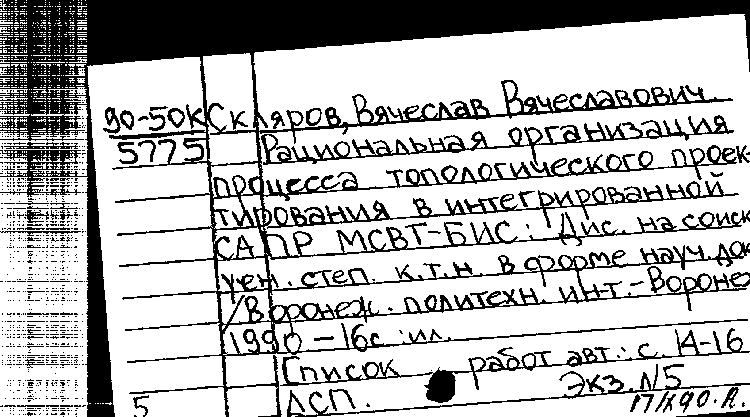 90-50К Скляров, Вячеслав Вячеславович.
5775 Рациональная организация
процесса топологического проек-
тирования в интегрированной
САПР МСВТ-БИС: Дис. на соиск
учен. степ. к.т.н. в форме науч. док
/Воронеж. политехн. ин-т.-Воронеж
1990 - 16с.:ил.
Список работ авт.: с. 14-16
5 ДСП. Экз. №5